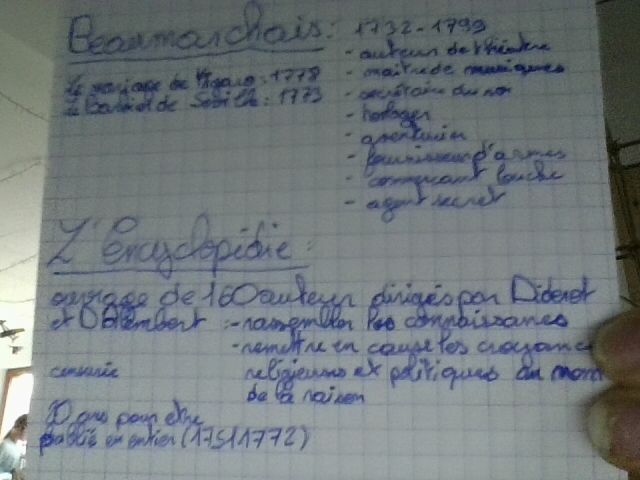 Beaumarchais : 1732-1799
- auteur de théatre
Le mariage de Figaro : 1778
- maître de musiques
Le Barbier de Seville : 1775
- secrétaire du roi
- horloger
- aventurier
- fournisseur d'armes
- commerçant louche
- agent secret
L'Encyclopédie :
ouvrage de 160 auteur dirigés par Diderot
et D'Alembert : - rassembler les connaissances
- remettre en cause les croyances
censurée religieuses et politiques au nom
de la raison
20 ans pour être
publié en entier (1751 1772)